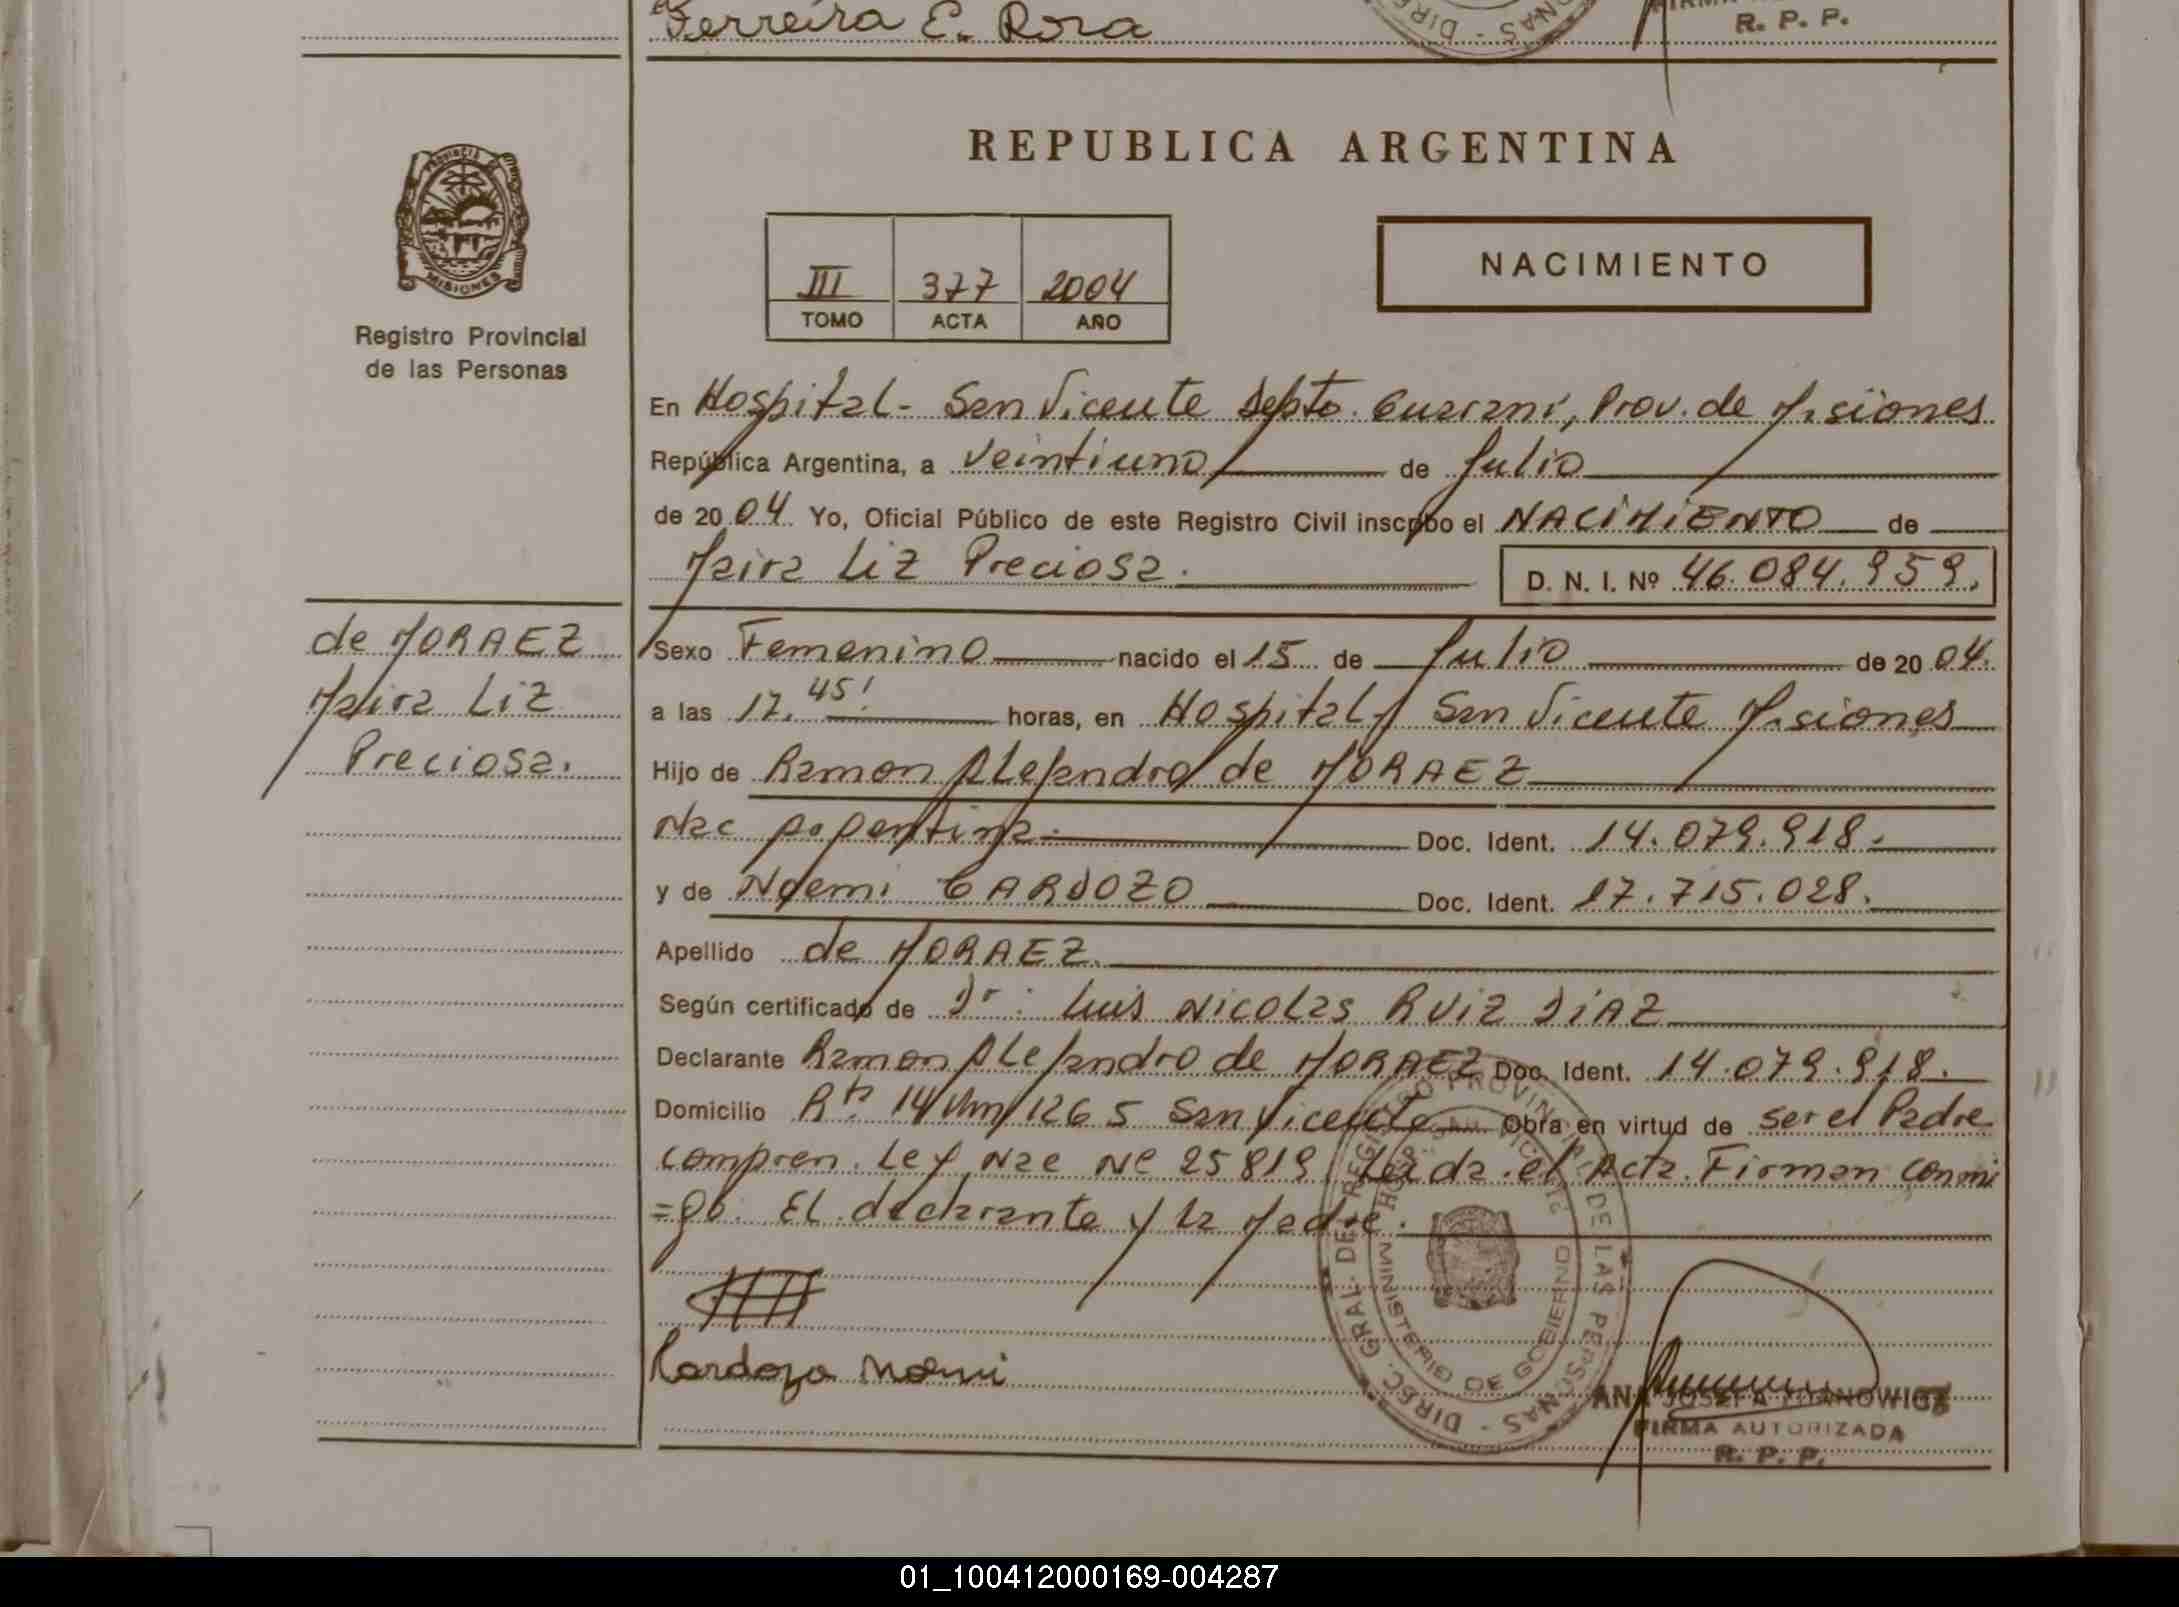 Ferreira E. Rosa
R. P. P.
PROVINCIA DE
MISIONES
Registro Provincial
de las Personas
REPUBLICA ARGENTINA
III 377 2004
TOMO ACTA AÑO
NACIMIENTO
En Hospital - San Vicente Depto. Guarani, Prov. de Misiones
República Argentina, a Veintiuno de Julio
de 2004 Yo, Oficial Público de este Registro Civil inscribo el NACIMIENTO de
Maira Liz Preciosa.
D. N. I. Nº 46.084.959.
de MORAEZ
Maira Liz
Preciosa.
Sexo Femenino nacido el 15 de Julio de 2004.
a las 17.45! horas, en Hospital San Vicente Misiones
Hijo de Ramon Alejandro de MORAEZ
Nac Argentina. Doc. Ident. 14.079.918.
y de Noemi CARDOZO Doc. Ident. 17.715.028.
Apellido de MORAEZ.
Según certificado de Dr: Luis Nicolas RUIZ DIAZ
Declarante Ramon Alejandro de MORAEZ Doc. Ident. 14.079.918.
Domicilio Rta 14 Km 1265 San Vicente Obra en virtud de ser el Padre
compren. Ley Nac Nº 25819 Leida el Acta. Firman conmi
=go. El declarante y la Madre.
Cardozo Noemi
DIREC. GRAL. DE REGISTRO PROVINCIAL DE LAS PERSONAS
MINISTERIO DE GOBIERNO
ANA JOSEFA
FIRMA AUTORIZADA
R. P. P.
01_100412000169-004287